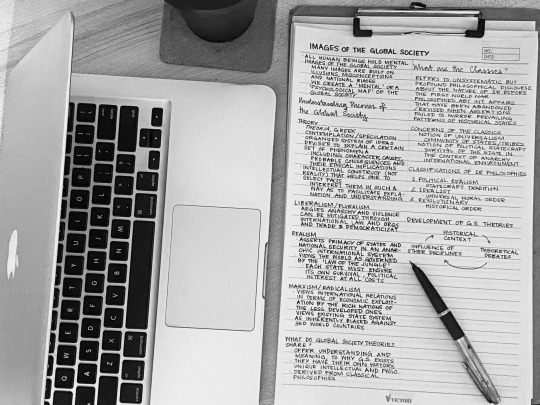 IMAGES OF THE GLOBAL SOCIETY
NO.:
DATE:
ALL HUMAN BEINGS HOLD MENTAL
IMAGES OF THE GLOBAL SOCIETY
MANY IMAGES ARE BUILT ON
ILLUSIONS, MISCONCEPTIONS
AND NATIONAL BIASES
WE CREATE A 'MENTAL' OR A
'PSYCHOLOGICAL MAP' OF THE
GLOBAL SOCIETY
Understanding Theories of
the Global Society
THEORY
THEORIA, GREEK
CONTEMPLATION/SPECULATION
ORGANIZED SYSTEM OF IDEAS
DEVISED TO EXPLAIN A CERTAIN
SET OF PHENOMENA
INCLUDING CHARACTER, CAUSES,
PROBABLE CONSEQUENCES AND
THEIR ETHICAL IMPLICATIONS
INTELLECTUAL CONSTRUCT (NOT
REALITY) THAT HELPS ONE TO
SELECT FACTS
INTERPRET THEM IN SUCH A
WAY AS TO FACILITATE EXPLA-
NATION AND UNDERSTANDING
LIBERALISM/PLURALISM
ARGUES ANARCHY AND VIOLENCE
CAN BE MITIGATED THROUGH
INTERNATIONAL LAW AND ORGS
AND TRADE & DEMOCRATIZAT.
REALISM
ASSERTS PRIMACY OF STATES AND
NATIONAL SECURITY IN AN ANAR-
CHIC INTERNATIONAL SYSTEM
VIEWS THE WORLD AS GOVERNED
BY THE 'LAW OF THE JUNGLE'
EACH STATE MUST ENSURE
ITS OWN SURVIVAL, POLITICAL
INTEREST AT ALL COSTS
MARXISM/RADICALISM
VIEWS INTERNATIONAL RELATIONS
IN TERMS OF ECONOMIC EXPLOIT-
ATION BY THE RICH NATIONS OF
THE LESS DEVELOPED ONES
VIEWS EXISTING STATE SYSTEM
AS INHERENTLY BIASED AGAINST
3RD WORLD COUNTRIES
WHAT DO GLOBAL SOCIETY THEORIES
SHARE?
OFFER UNDERSTANDING AND
MEANING TO WHY G.S. EXISTS
THEY HAVE THEIR OWN HISTORY,
UNIQUE INTELLECTUAL AND PHILO.
DERIVED FROM CLASSICAL
PHILOSOPHIES
What are the Classics?
REFERS TO UNSYSTEMATIC BUT
PROFOUND PHILOSOPHICAL DISCOURSE
ABOUT THE NATURE OF IR BEFORE
THE FIRST WORLD WAR
PHILOSOPHIES ABOUT INT. AFFAIRS
THAT HAVE BEEN ABANDONED
/REVISED WHEN ASSERTIONS
FAILED TO MIRROR PREVAILING
PATTERNS OF HISTORICAL STATES
CONCERNS OF THE CLASSICS
NOTION OF UNIVERSALISM
COMMUNITY OF STATES/TRIBES
NOTION OF POLITICAL STATEHOOD
SURVIVAL OF THE STATE IN
THE CONTEXT OF ANARCHY
INTERNATIONAL ENVIRONMENT
CLASSIFICATIONS OF IR PHILOSOPHIES
1. POLITICAL REALISM
STATECRAFT TRADITION
2. IDEALIST
UNIVERSAL MORAL ORDER
3. REVOLUTIONARY
HISTORICAL ORDER
DEVELOPMENT OF G.S. THEORIES
HISTORICAL
CONTEXT
INFLUENCE OF
OTHER DISCIPLINES
THEORETICAL
DEBATES
VICTORY